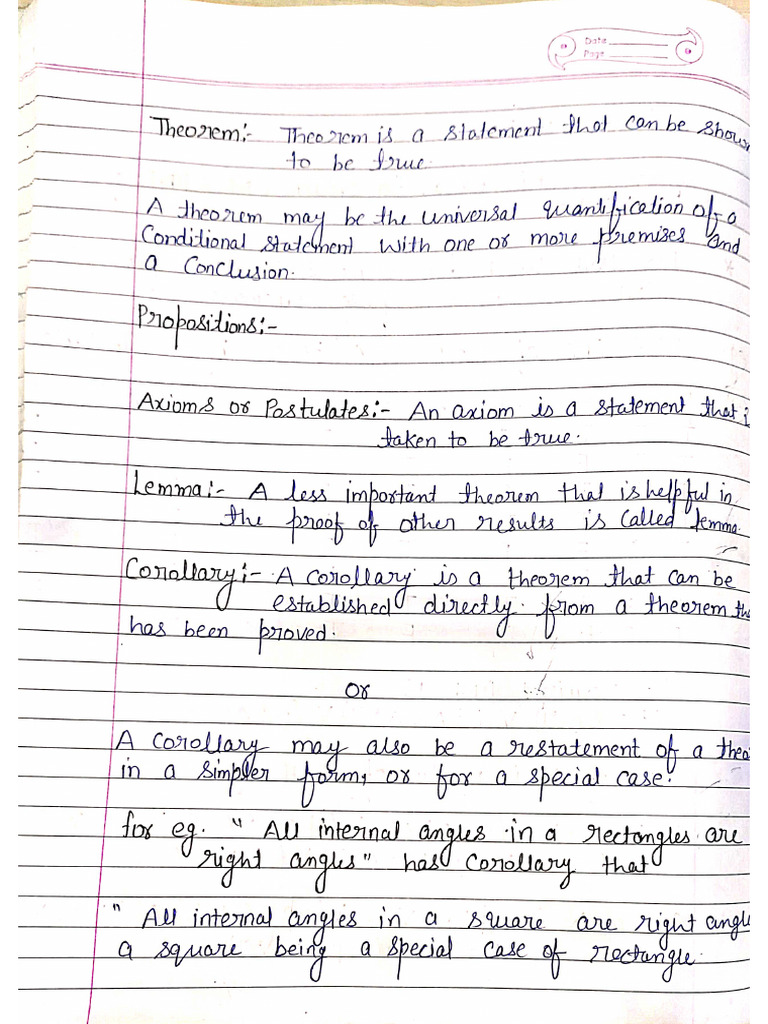 Date
Page
Theorem:- Theorem is a statement that can be show
to be true.
A theorem may be the universal quantification of a
Conditional statement with one or more premises and
a Conclusion.
Propositions:-
Axioms or Postulates:- An axiom is a statement that i
taken to be true.
Lemma:- A less important theorem that is helpful in
the proof of other results is Called lemma
Corollary:- A corollary is a theorem that can be
established directly from a theorem tha
has been proved.
or
A corollary may also be a restatement of a theo
in a simpler form, or for a special case.
for eg. "All internal angles in a rectangles are
right angles" has Corollary that
"All internal angles in a square are right angle
a square being a special case of rectangle.